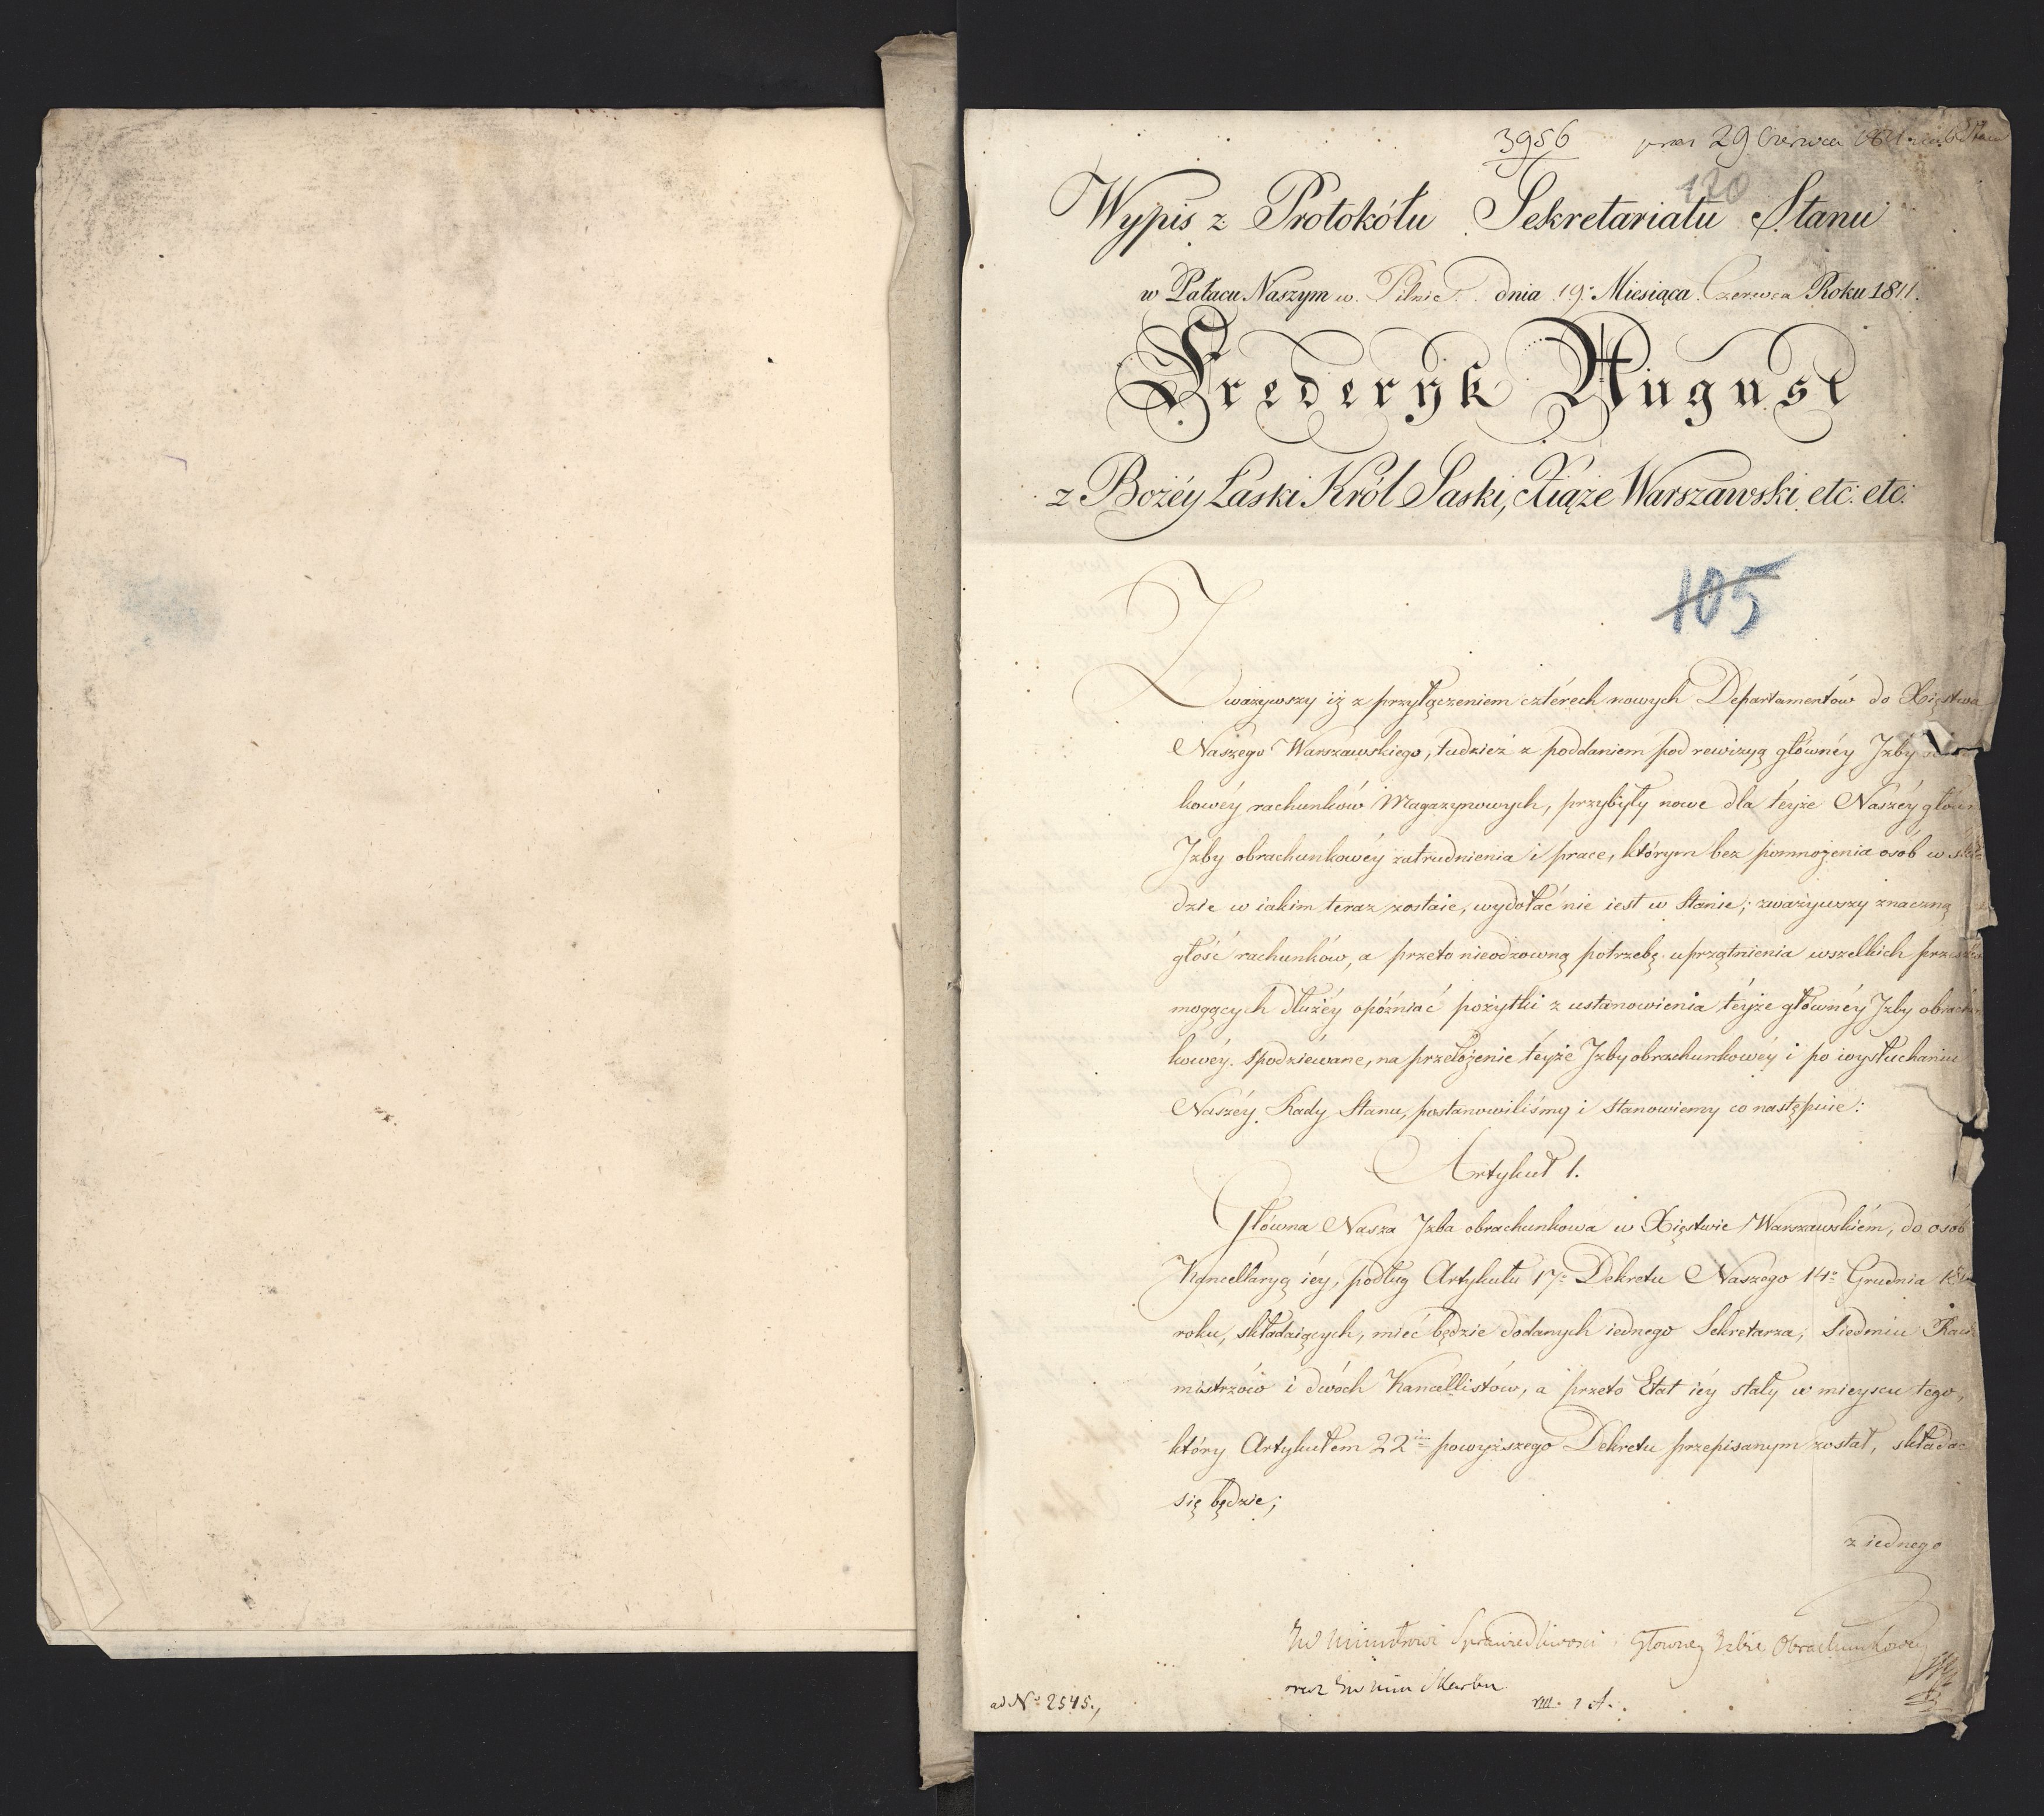 3956 29 Czerwca
170
Wypis z Protokółu Sekretariatu Stanu
w Pałacu Naszym w. Pilnic. dnia 19. Miesiąca Czerwca Roku 1811.
Frederyk August
z Bożéy Łaski Król Saski, Xiąże Warszawski etc: etc:
105
Zważywszy iż z przyłączeniem cztérech nowych Departamentów do Xięstwa
Naszego Warszawskiego, tudzież z poddaniem pod rewizyą głównéy Jzby
kowéy rachunków Magazynowych, przybyły nowe dla téyże Naszéy główn
Jzby obrachunkowéy zatrudnienia i prace, którym bez pomnożenia osób w skła
dzie w iakim teraz zostaie, wydołać nie iest w Stanie; zważywszy znaczną
głość rachunków, a przeto nieodzowną potrzebę uprzątnienia wszelkich przeszkó
mogących dłużéy opóźniać pożytki z ustanowienia téyże głównéy Jzby obrachun
kowéy spodziéwane, na przełożenie téyże Jzby obrachunkowéy i po wysłuchaniu
Naszéy Rady Stanu, postanowiliśmy i Stanowiemy co następuie:
Artykuł 1.
Główna Nasza Jzba obrachunkowa w Xięstwie Warszawskiém, do osób
Kancellaryą iéy, podług Artykułu 17o Dekretu Naszego 14o Grudnia
roku, składaiących, mieć będzie dodanych iednego Sekretarza, Siedmiu Rach
mistrzów i dwóch Kancéllistów, a przeto Etat iéy stały w mieyscu tego,
który Artykułem 22im powyższego Dekretu przepisanym został, składać
się będzie;
z iednego
JW Ministrowi Sprawiedliwości i Główney Izbie Obrachunkowey
oraz JW Min Skarbu
ad No 2545.,